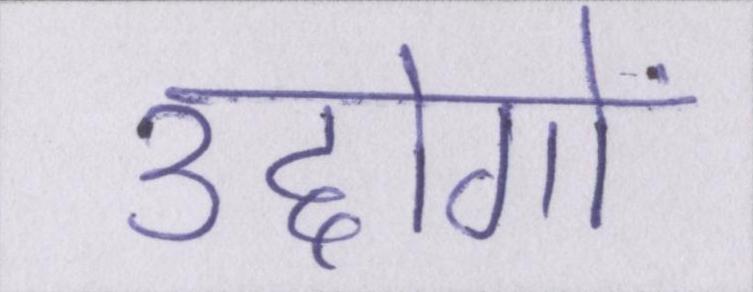 उद्योगों